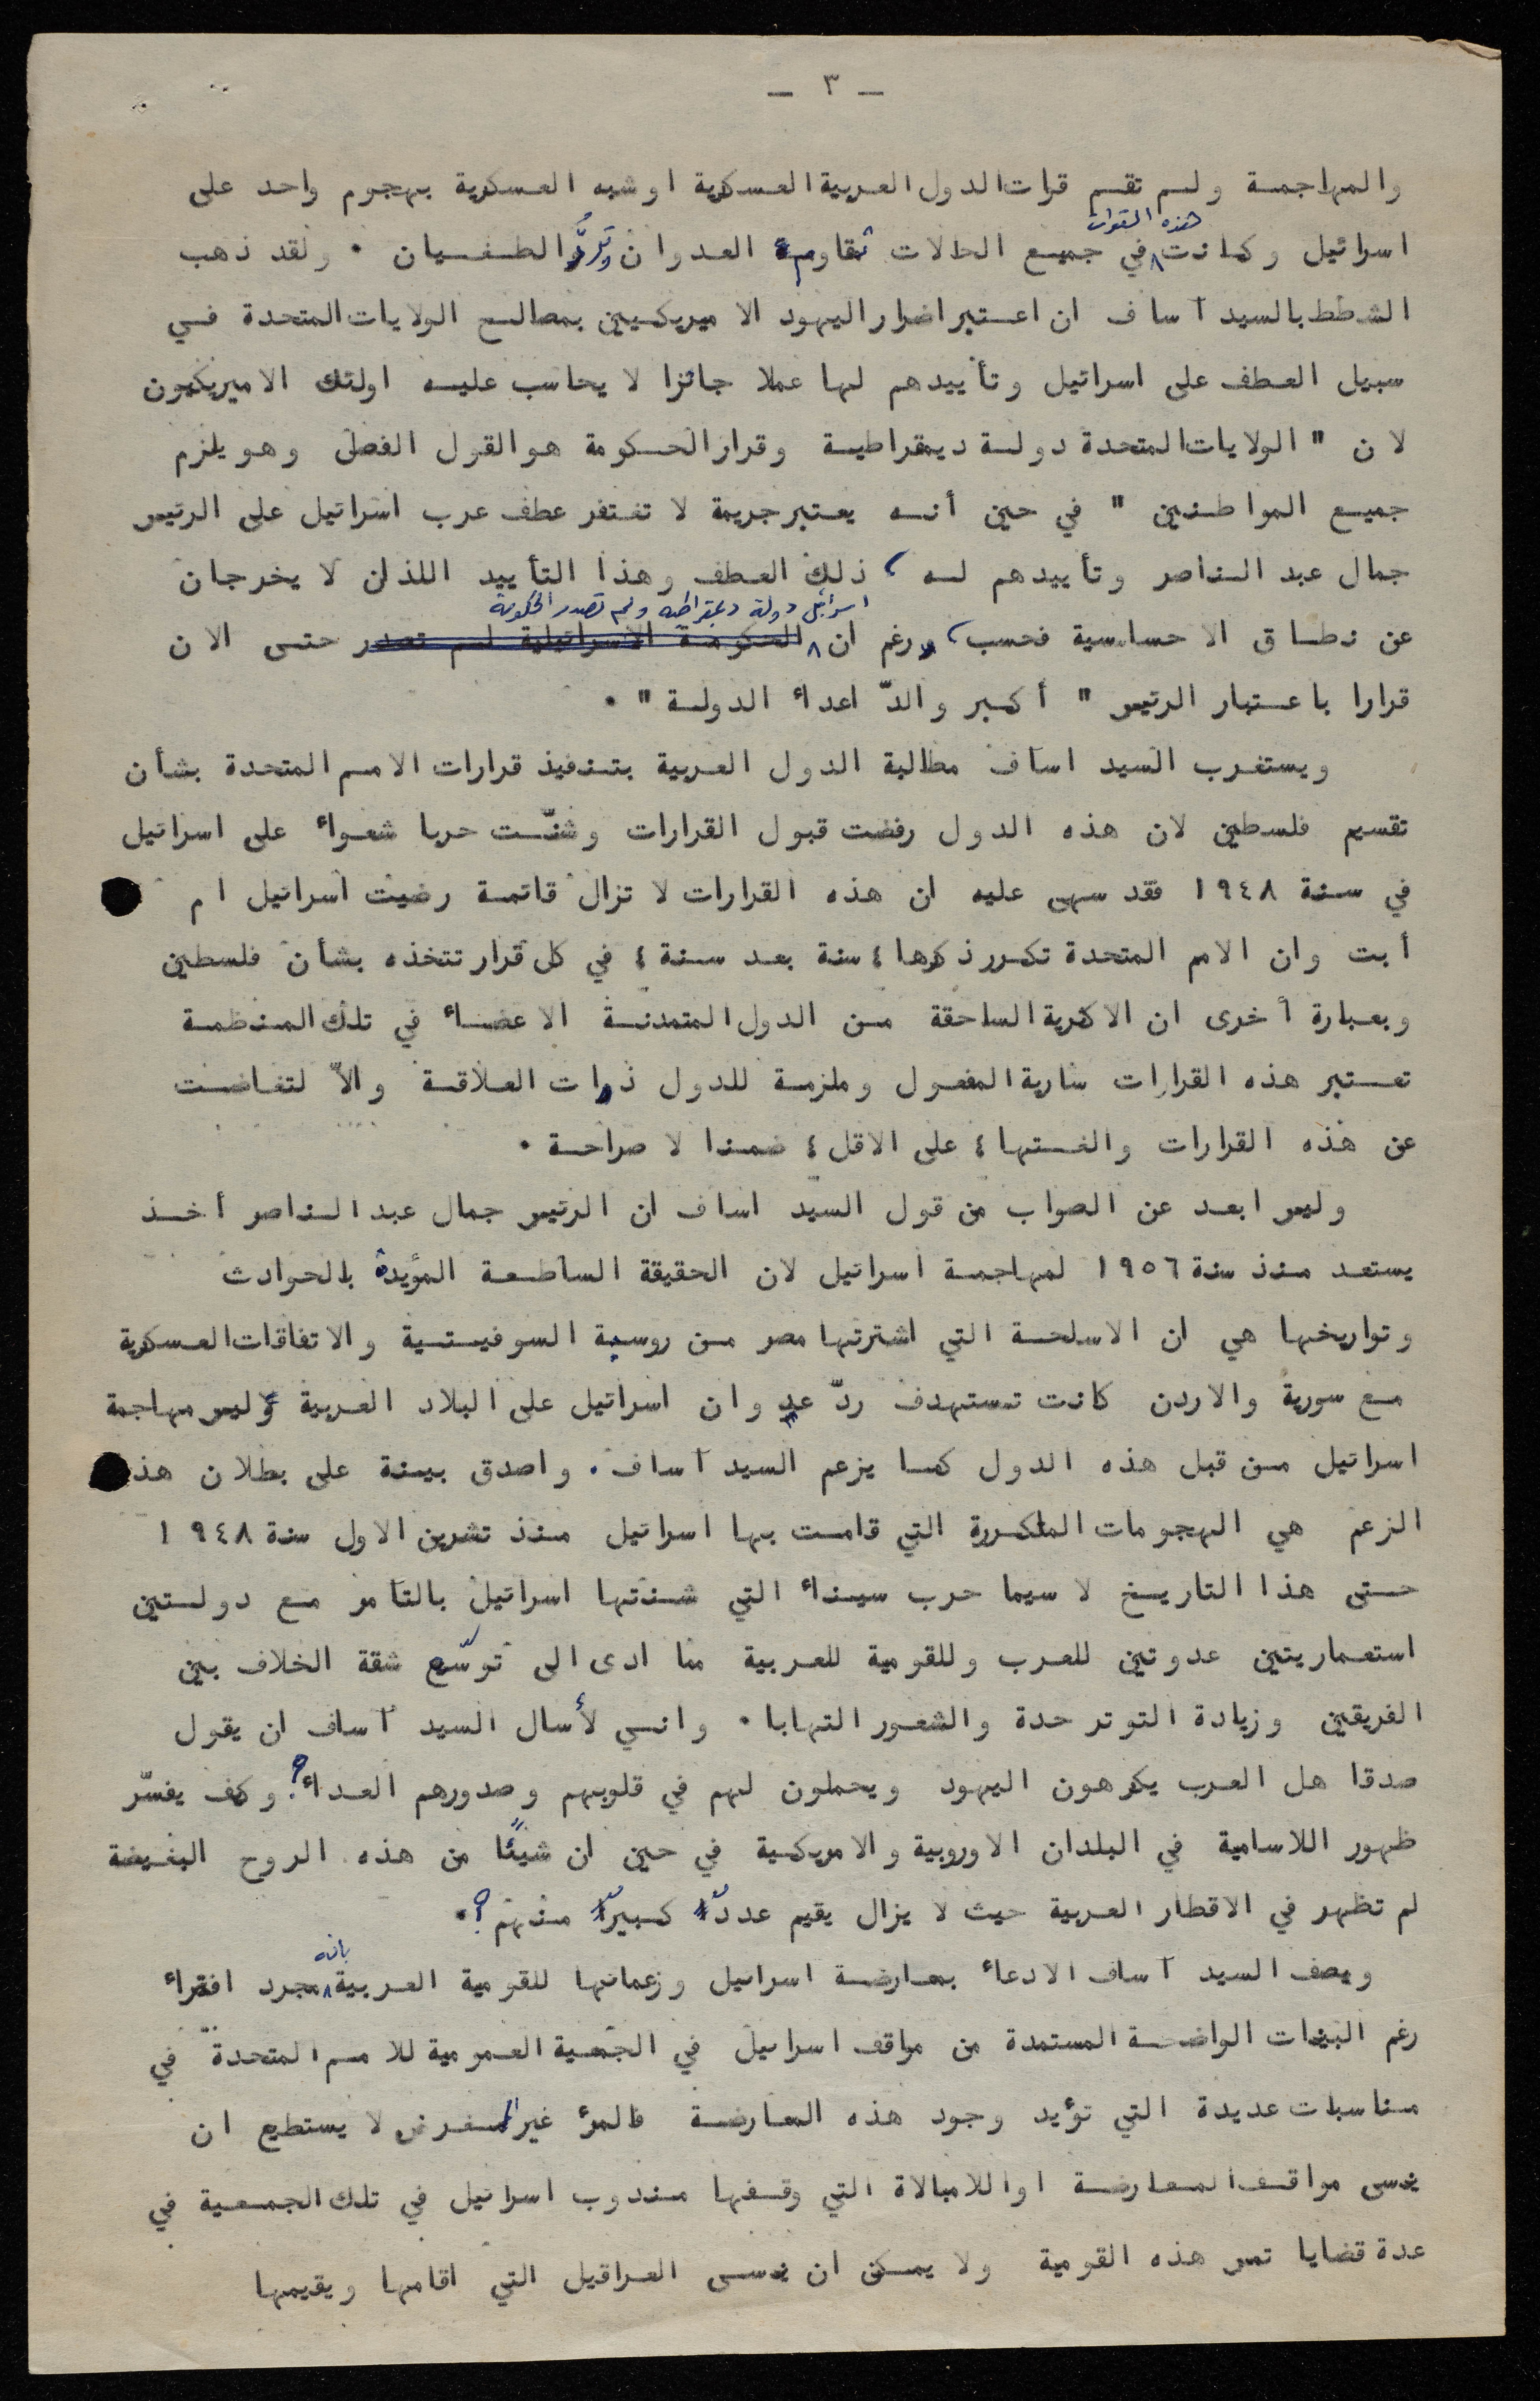 — ٣ —
والمهاجمة ولم تقم قوات الدول العربية العسكرية او شبه العسكرية بهجوم واحد على
هذه القوات
اسرائيل وكانت في جميع الحالات تقاوم العدوان وتردّ الطغيان . ولقد ذهب
الشطط بالسيد آساف ان اعتبر اضرار اليهود الاميريكيين بمصالح الولايات المتحدة في
سبيل العطف على اسرائيل وتأييدهم لها عملا جائزا لا يحاسب عليه اولئك الاميريكيون
لان " الولايات المتحدة دولة ديمقراطية وقرار الحكومة هو القول الفصل وهو يلزم
جميع المواطنين " في حين أنه يعتبر جريمة لا تغتفر عطف عرب اسرائيل على الرئيس
جمال عبد الناصر وتأييدهم له ، ذلك العطف وهذا التأييد اللذان لا يخرجان
اسرائيل دولة ديمقراطيه ولم تصدر الحكومة
عن نطاق الاحساسية فحسب ، ورغم ان الحكومة الاسرائيلية لم تصدر حتى الان
قرارا باعتبار الرئيس " أكبر والدّ اعداء الدولة " .
ويستغرب السيد اساف مطالبة الدول العربية بتنفيذ قرارات الامم المتحدة بشأن
تقسيم فلسطين لان هذه الدول رفضت قبول القرارات وشنّت حربا شعواء على اسرائيل
في سنة ١٩٤٨ فقد سهى عليه ان هذه القرارات لا تزال قائمة رضيت اسرائيل ام
أبت وان الامم المتحدة تكرر ذكرها ، سنة بعد سنة ، في كل قرار تتخذه بشأن فلسطين
وبعبارة أخرى ان الاكثرية الساحقة من الدول المتمدنة الاعضاء في تلك المنظمة
تعتبر هذه القرارات سارية المفعول وملزمة للدول ذوات العلاقة والاّ لتغاضت
عن هذه القرارات والغتها ، على الاقل ، ضمنا لا صراحة .
وليس ابعد عن الصواب من قول السيد اساف ان الرئيس جمال عبد الناصر أخذ
يستعد منذ سنة ١٩٥٦ لمهاجمة اسرائيل لان الحقيقة الساطعة المؤيدة بالحوادث
وتواريخها هي ان الاسلحة التي اشترتها مصر من روسية السوفيتية والاتفاقات العسكرية
مع سورية والاردن كانت تستهدف ردّ عدوان اسرائيل على البلاد العربية وليس مهاجمة
اسرائيل من قبل هذه الدول كما يزعم السيد آساف . واصدق بينة على بطلان هذا
الزعم هي الهجومات المتكررة التي قامت بها اسرائيل منذ تشرين الاول سنة ١٩٤٨
حتى هذا التاريخ لا سيما حرب سيناء التي شنتها اسرائيل بالتآمر مع دولتين
استعماريتين عدوتين للعرب وللقومية للعربية مما ادى الى توسّع شقة الخلاف بين
الفريقين وزيادة التوتر حدة والشعور التهابا . واني لأسأل السيد آساف ان يقول
صدقا هل العرب يكرهون اليهود ويحملون لهم في قلوبهم وصدورهم العداء ؟ وكيف يفسّر
ظهور اللاسامية في البلدان الاوروبية والاميركية في حين ان شيئًا من هذه الروح البغيضة
لم تظهر في الاقطار العربية حيث لا يزال يقيم عددٌ كبيرٌ منهم ؟ .
بانه
ويصف السيد آساف الادعاء بمعارضة اسرائيل وزعمائها للقومية العربية مجرد افتراء
رغم البينات الواضحة المستمدة من مواقف اسرائيل في الجمعية العمومية للامم المتحدة في
مناسبات عديدة التي تؤيد وجود هذه المعارضة فالمرء غير المغرض لا يستطيع ان
ينسى مواقف المعارضة او اللامبالاة التي وقفها مندوب اسرائيل في تلك الجمعية في
عدة قضايا تمس هذه القومية ولا يمكن ان ينسى العراقيل التي اقامها ويقيمها